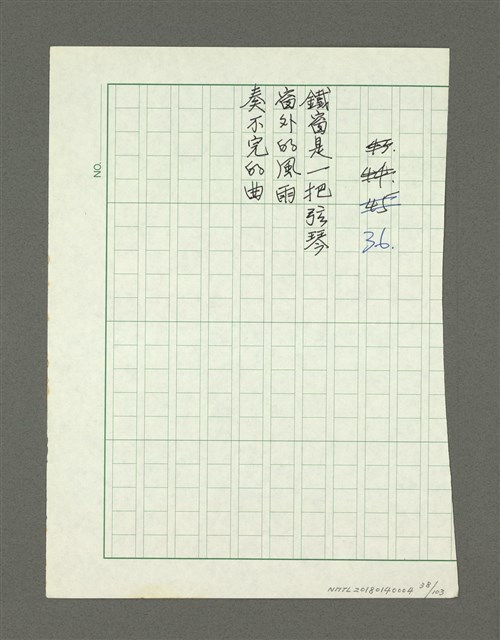 43.
44.
45
36.
鐵窗是一把弦琴
窗外的風雨
奏不完的曲
NO.
NMTL20180140004 38/103